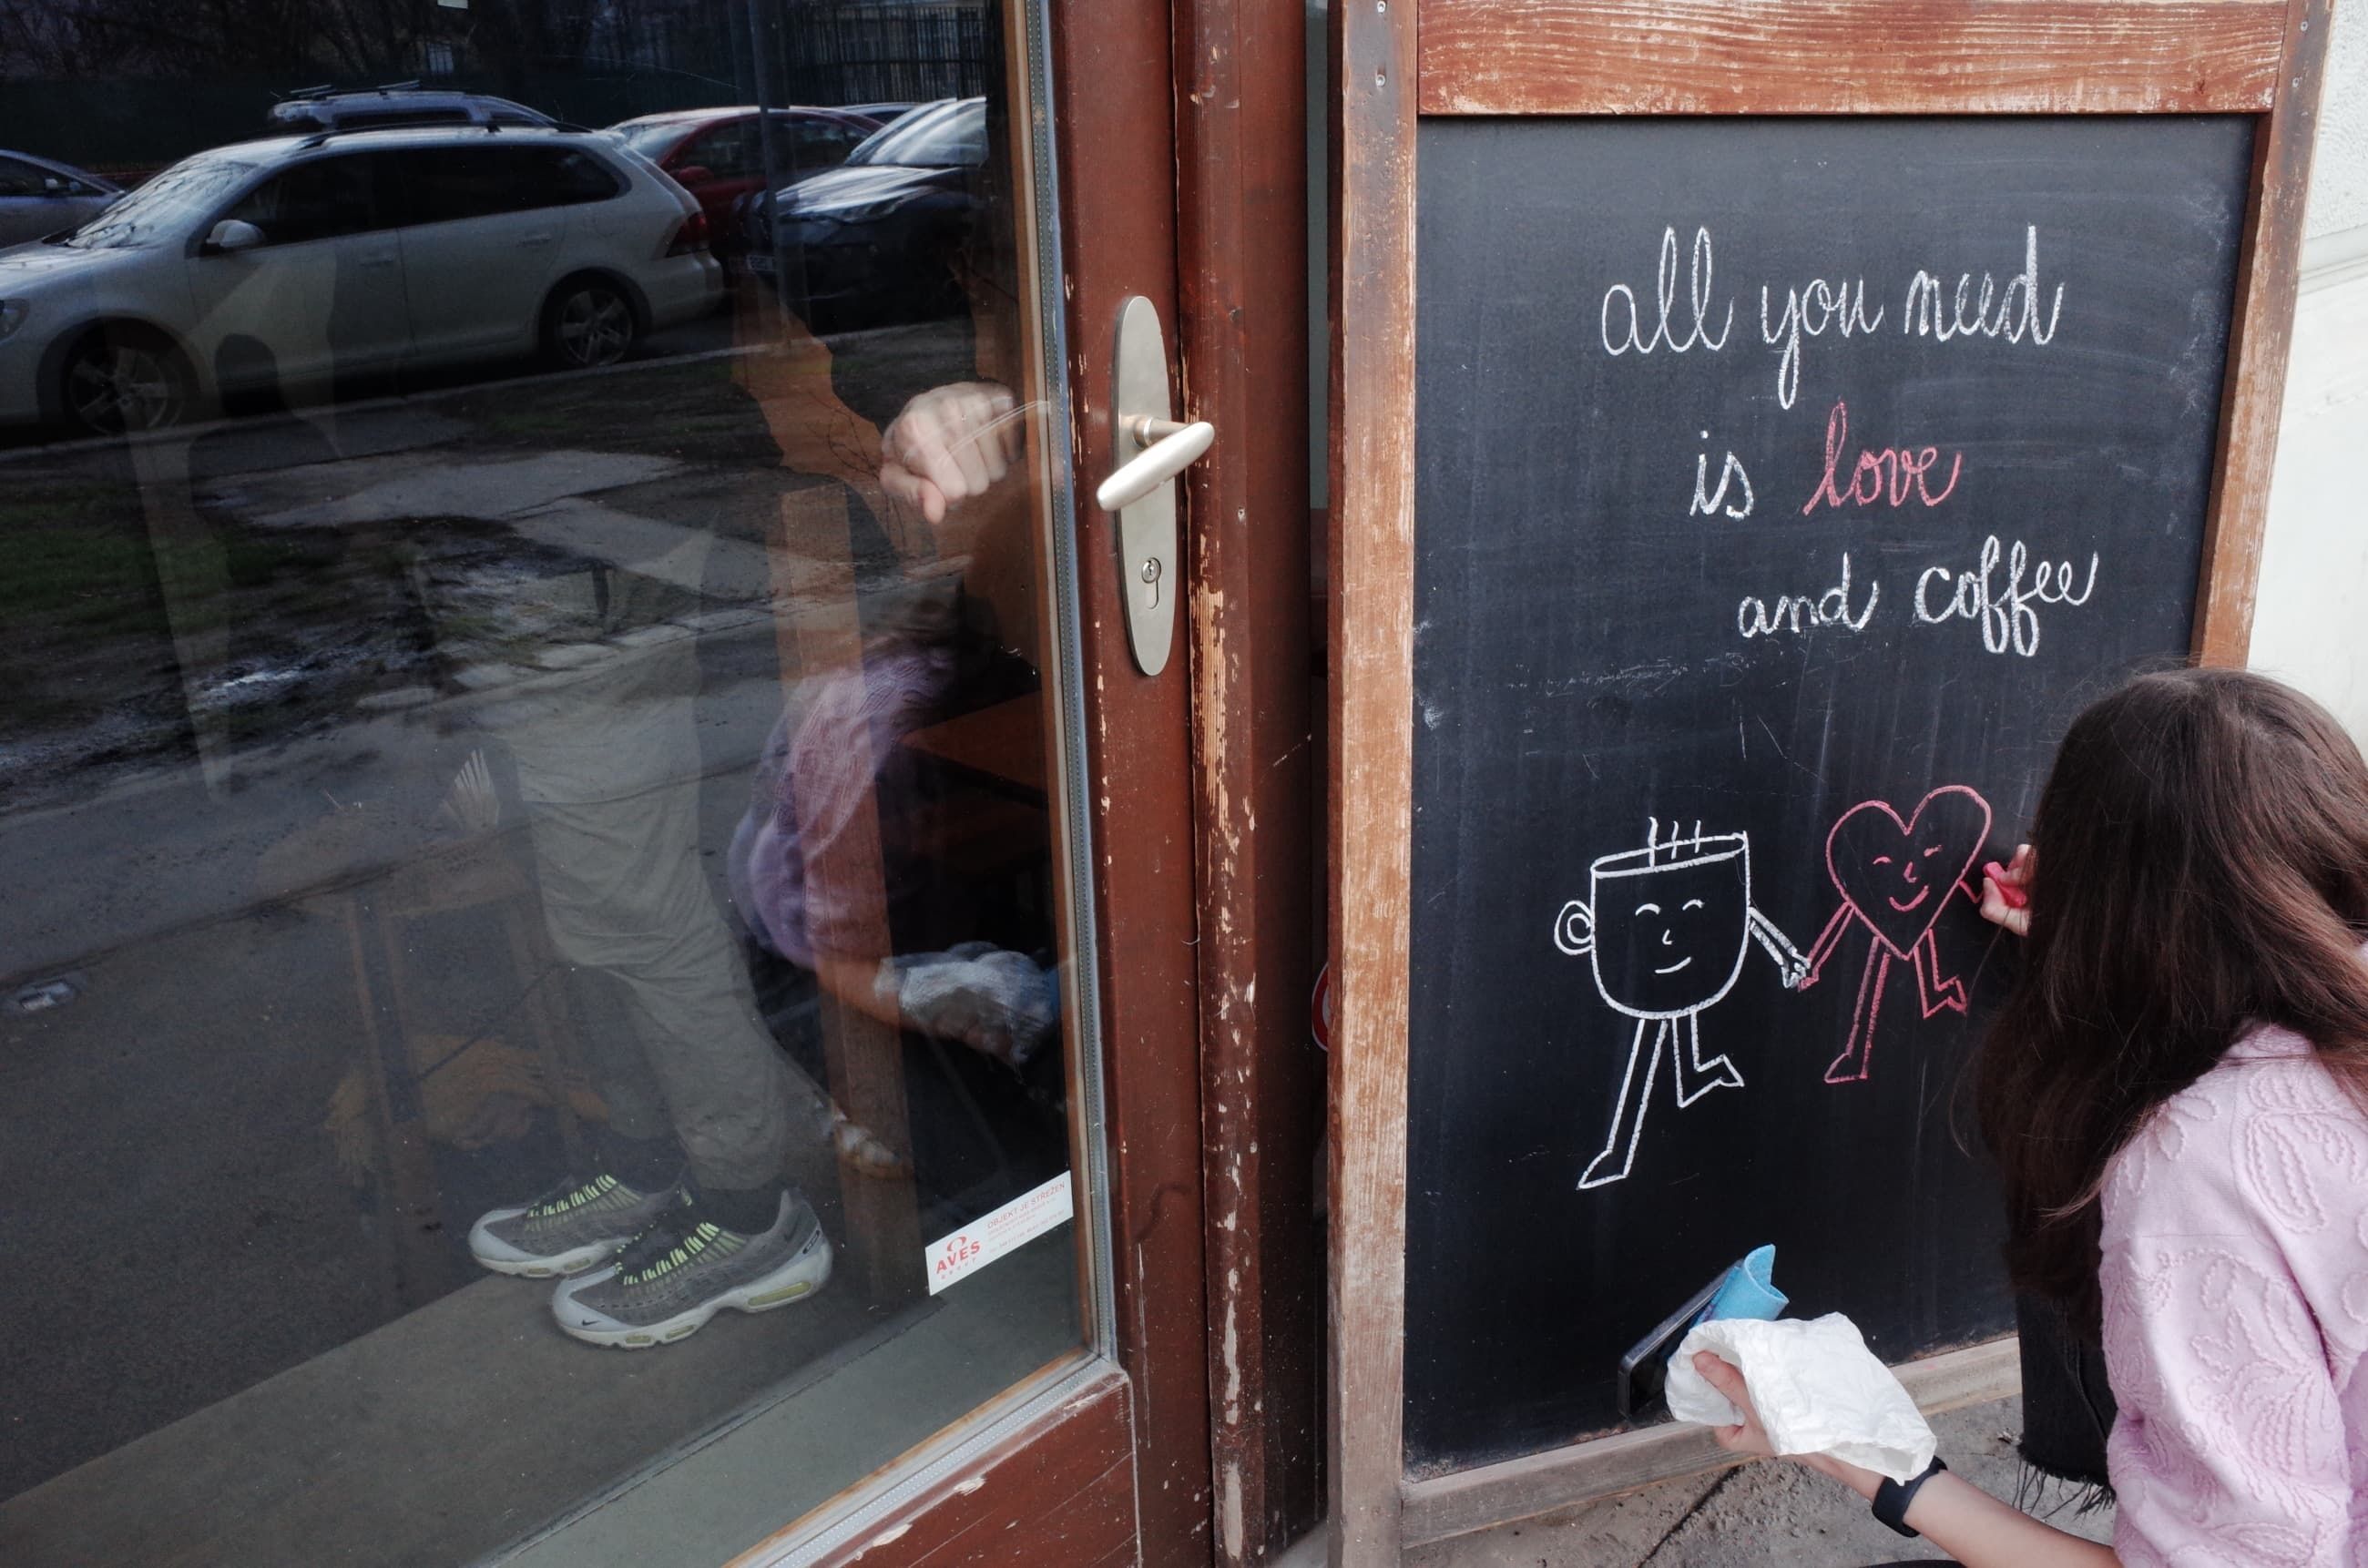 all you need
is love
and coffee
OBJEKT JE STŘEŽEN
AVES